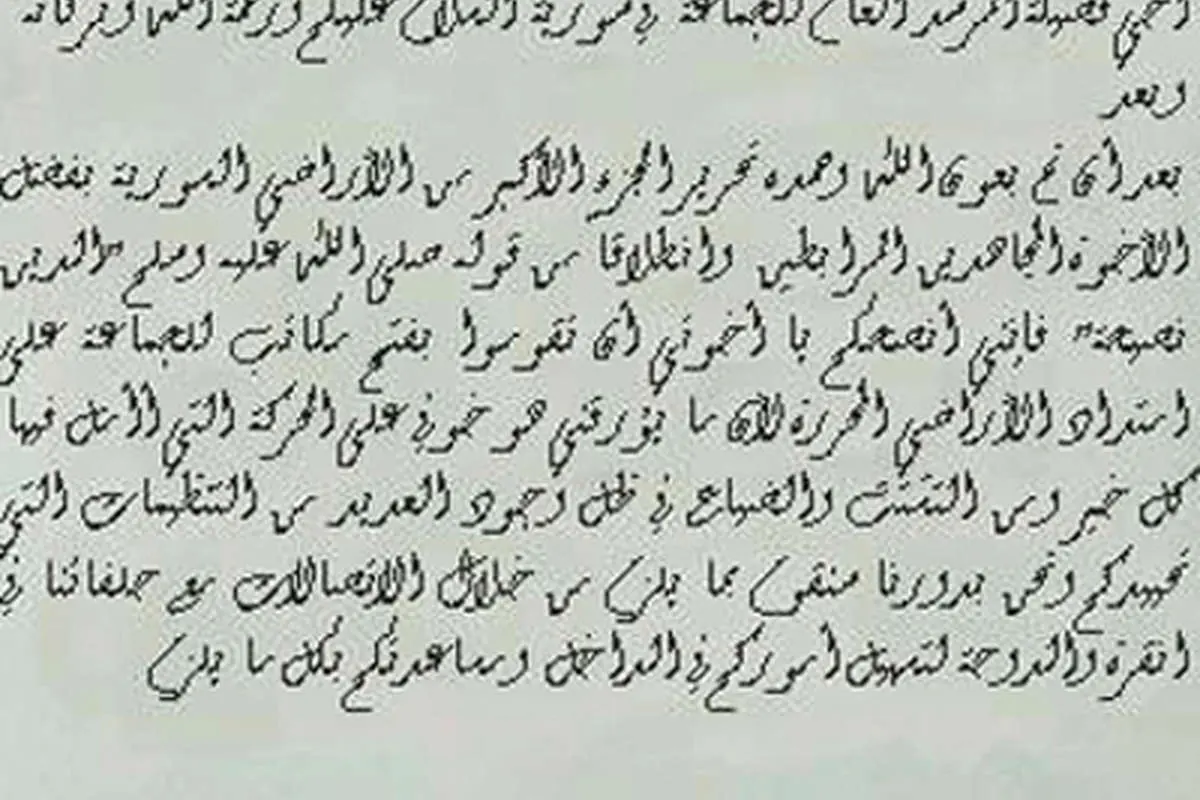 أخي فضيلة المرشد العام للجماعة في سورية السلام عليكم ورحمة الله وبركاته
وبعد
بعد أن تم بعون الله وحمده تحرير الجزء الأكبر من الأراضي السورية بفضل
الأخوة المجاهدين المرابطين وانطلاقا من قوله صلى الله عليه وسلم "الدين
نصيحة" فإنني أنصحكم يا أخوتي أن تقوموا بفتح مكاتب للجماعة على
امتداد الأراضي المحررة لأن ما يؤرقني هو خوفي على الحركة التي أأمل فيها
كل خير ومن التشتت والضياع في ظل وجود العديد من التنظيمات التي
تهددكم ونحن بدورنا سنقوم بما يلزم من خلال الاتصالات مع حلفائنا في
انقرة والدوحة لتسهيل أموركم في الداخل ومساعدتكم بكل ما يلزم